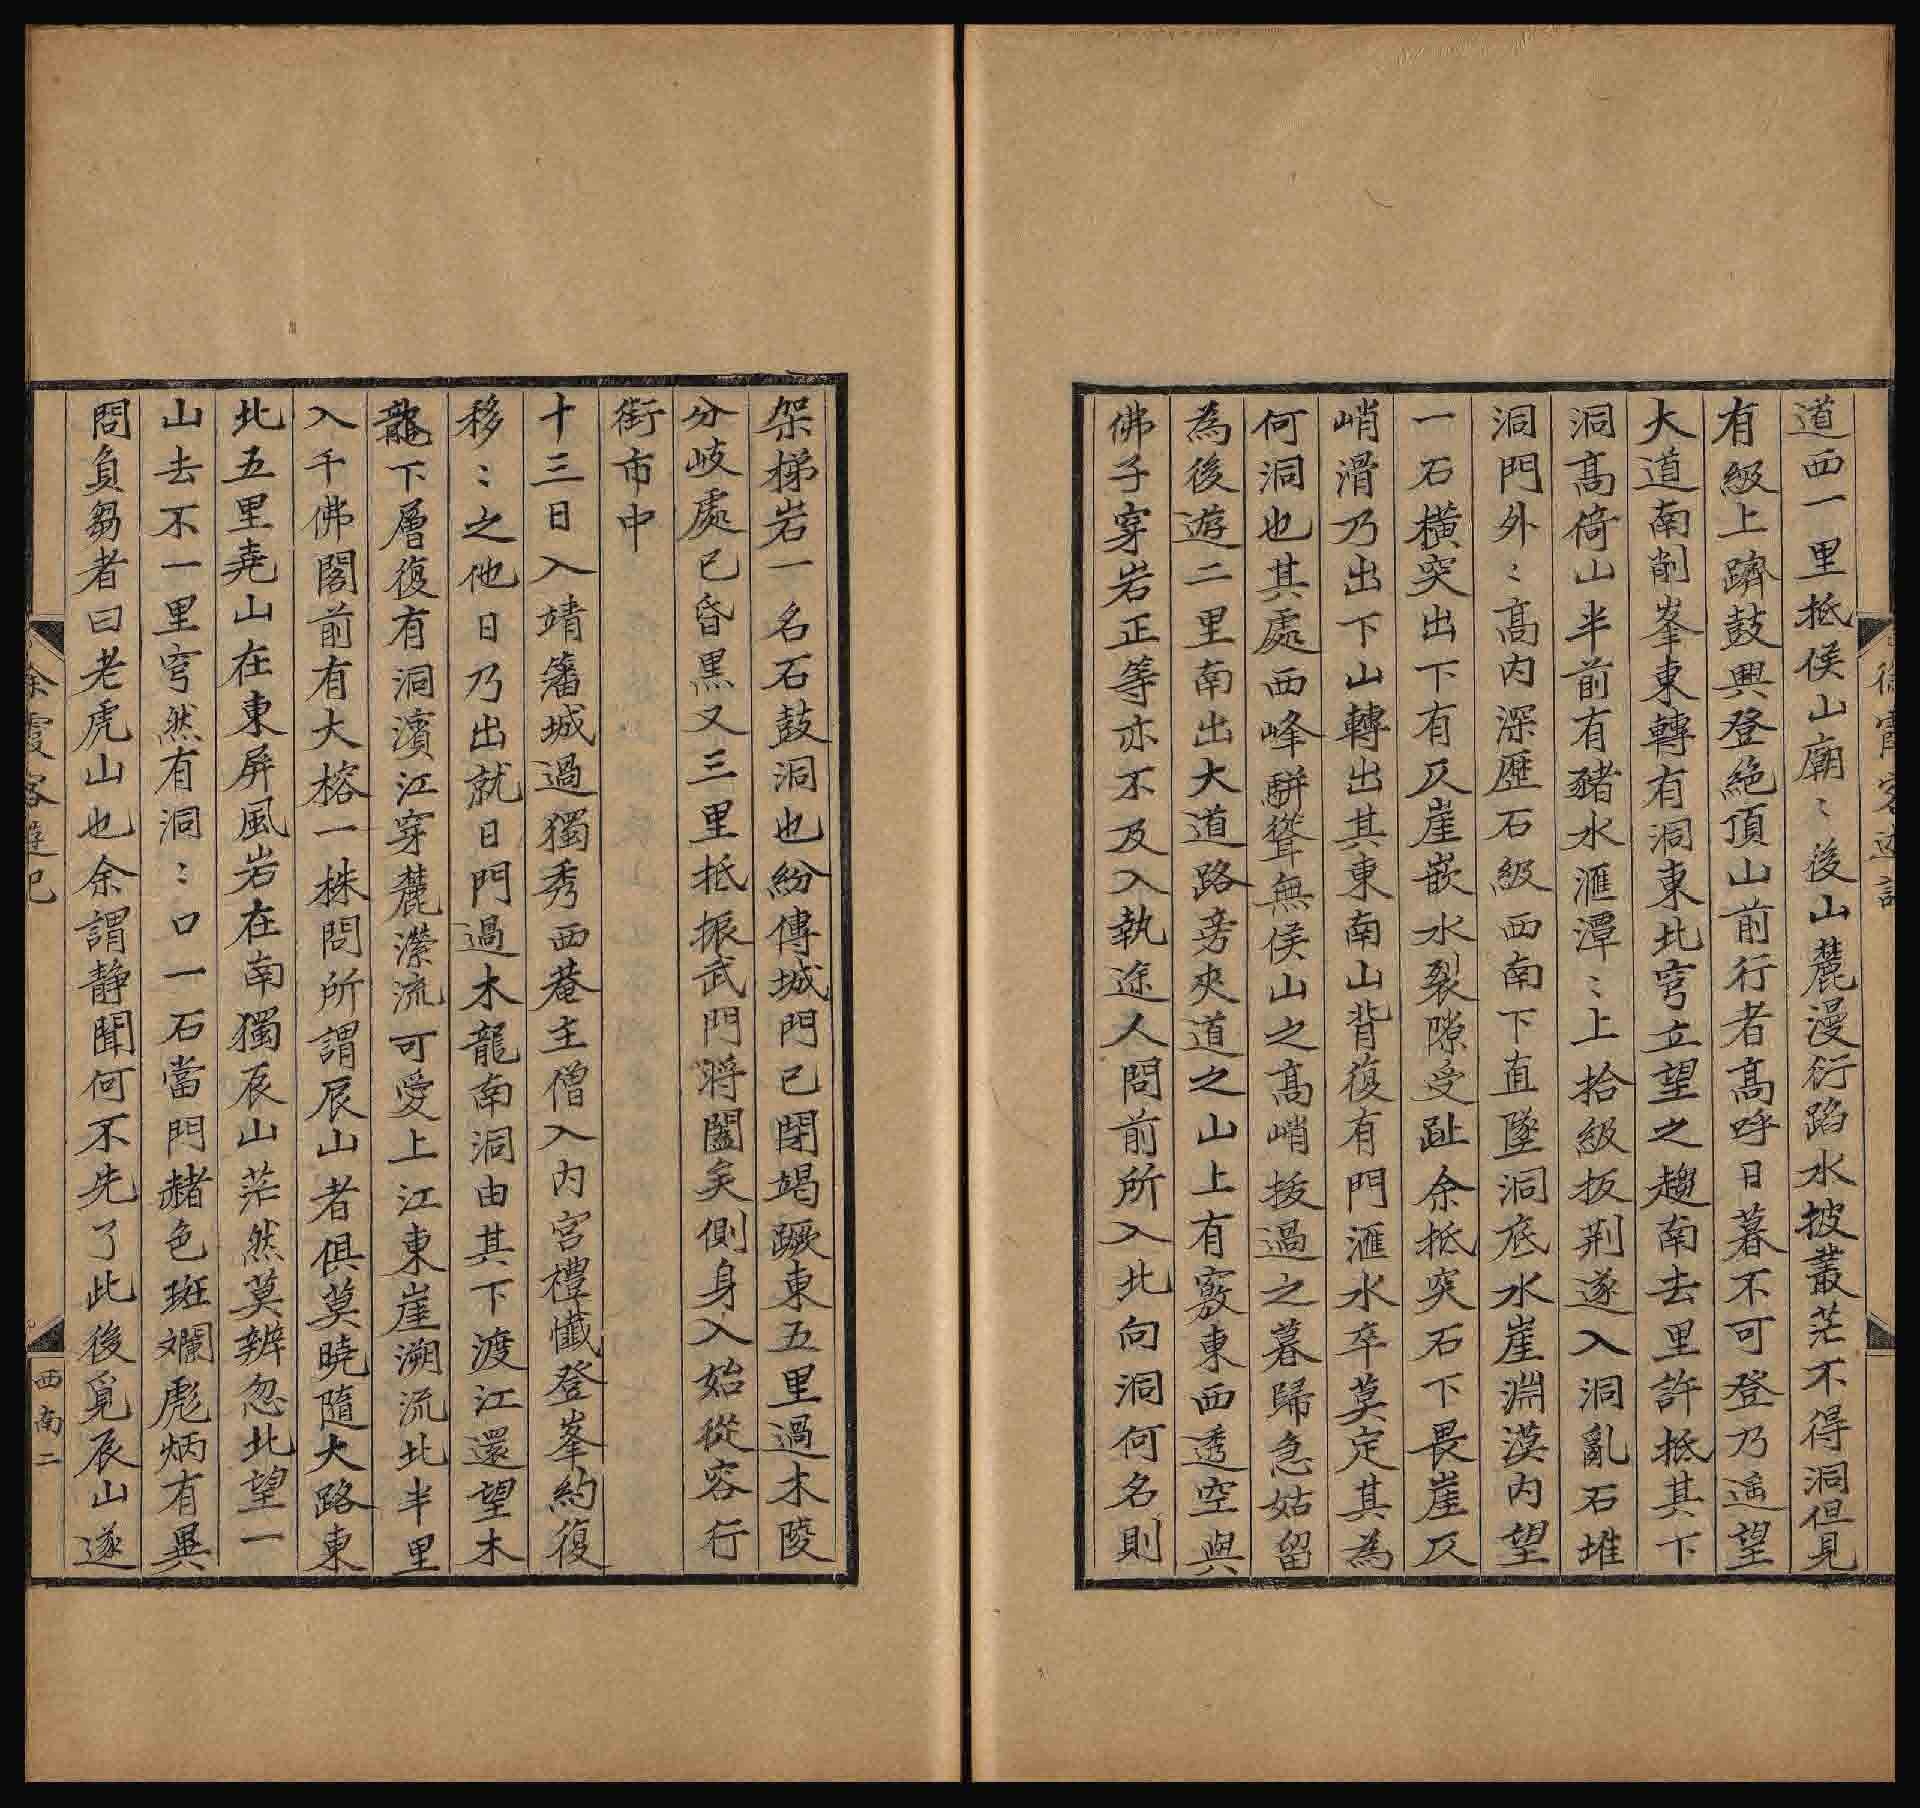 道西一里抵侯山廟〻後山麓漫衍蹈水披叢茫不得洞但見
有級上躋鼓興登絶頂山前行者高呼日暮不可登乃遥望
大道南削峯東轉有洞東北穹立望之趨南去里許抵其下
洞高倚山半前有豬水滙潭〻上拾級扳荆遂入洞亂石堆
洞門外〻高内深歷石級西南下直墜洞底水崖淵漠内望
一石橫突出下有仄崖嵌水裂隙受趾余抵突石下畏崖仄
峭滑乃出下山轉出其東南山背復有門滙水卒莫定其為
何洞也其處西峰駢聳無侯山之高峭拔過之暮歸急姑留
為後遊二里南出大道路旁夾道之山上有竅東西透空與
佛子穿岩正等亦不及入執途人問前所入北向洞何名則
架梯岩一名石鼓洞也紛傳城門已閉竭蹶東五里過木陵
分岐處已昏黑又三里抵振武門將闔矣側身入始從容行
街市中
十三日入靖藩城過獨秀西菴主僧入内宫禮懺登峯約復
移〻之他日乃出就日門過木龍南洞由其下渡江還望木
龍下層復有洞濱江穿麓瀠流可愛上江東崖溯流北半里
入千佛閣前有大榕一株問所謂辰山者俱莫曉隨大路東
北五里堯山在東屏風岩在南獨辰山茫然莫辨忽北望一
山去不一里穹然有洞〻口一石當門赭色斑斕彪炳有異
問負芻者曰老虎山也余謂静聞何不先了此後覓辰山遂
徐霞客遊記
西南二